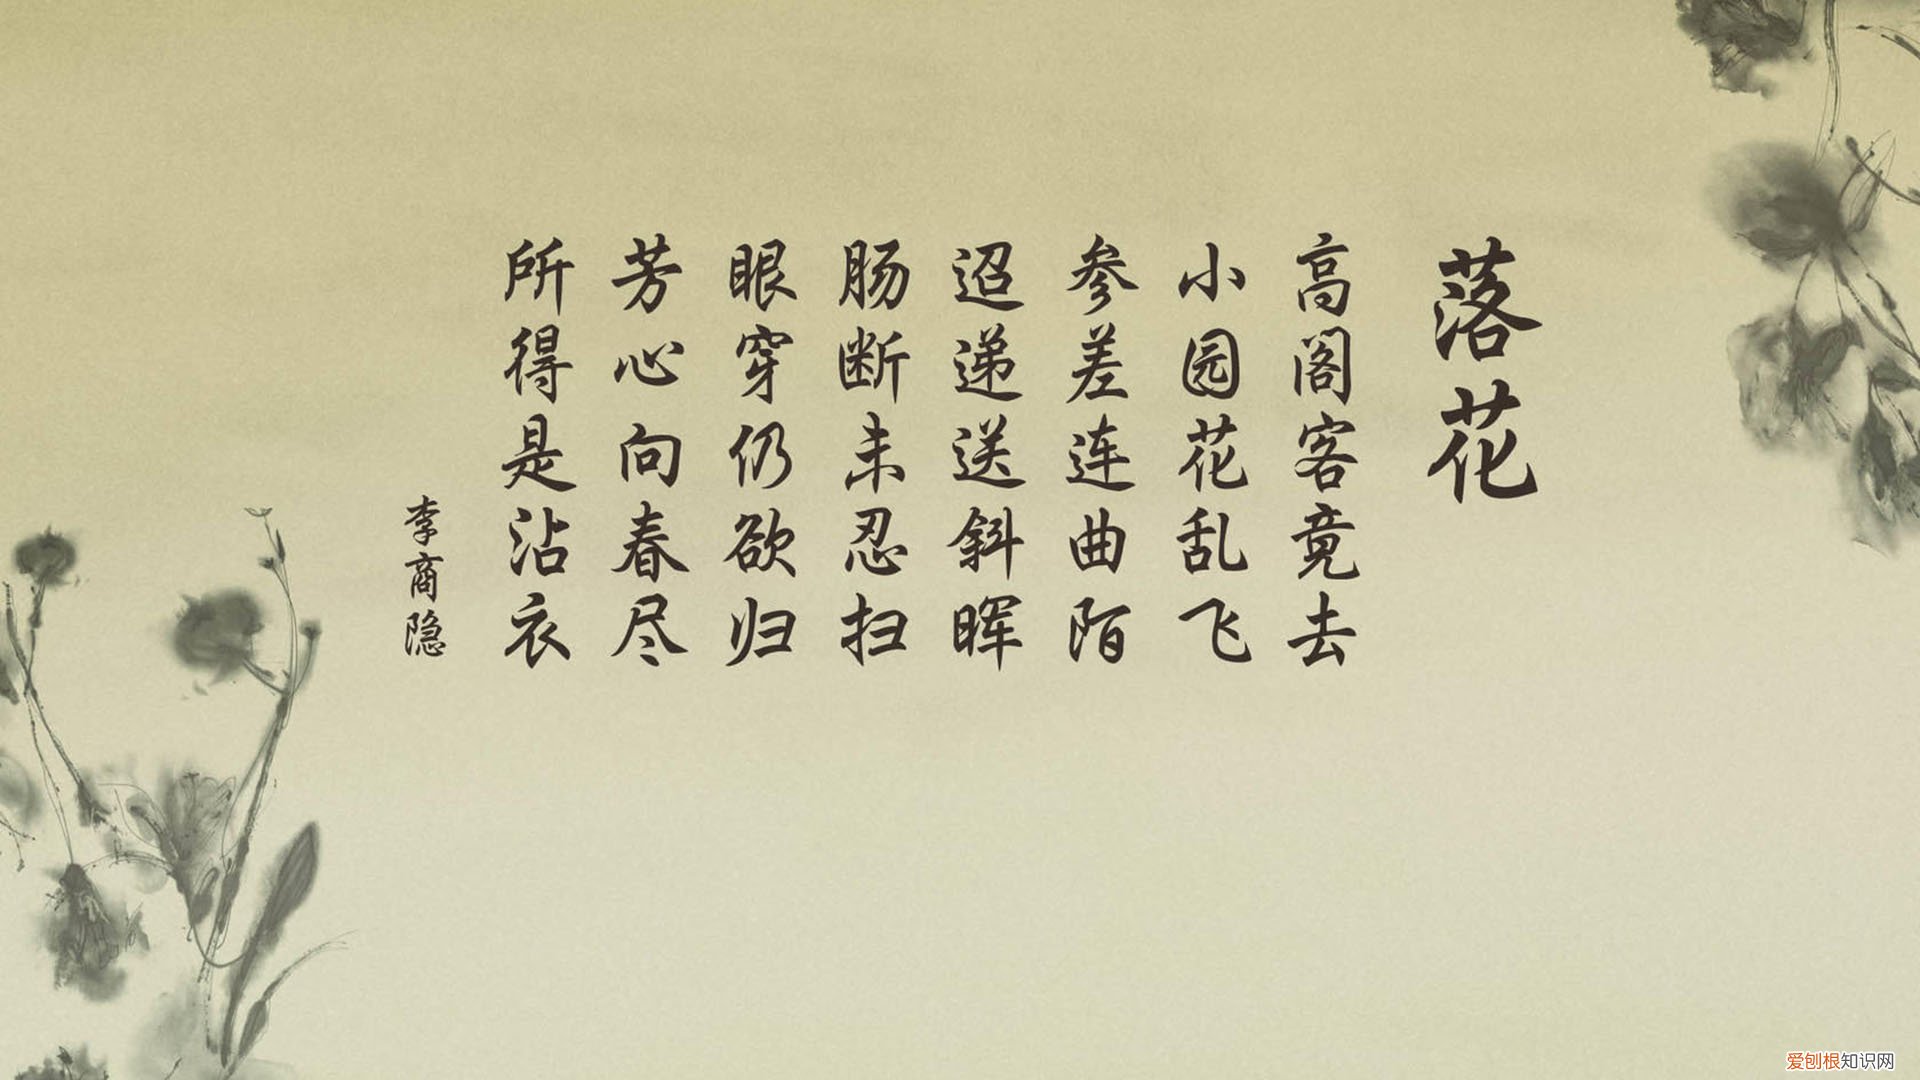 落花
高阁客竟去
小园花乱飞
参差连曲陌
迢递送斜晖
肠断未忍扫
眼穿仍欲归
芳心向春尽
所得是沾衣
李商隐
爱刨根知识网